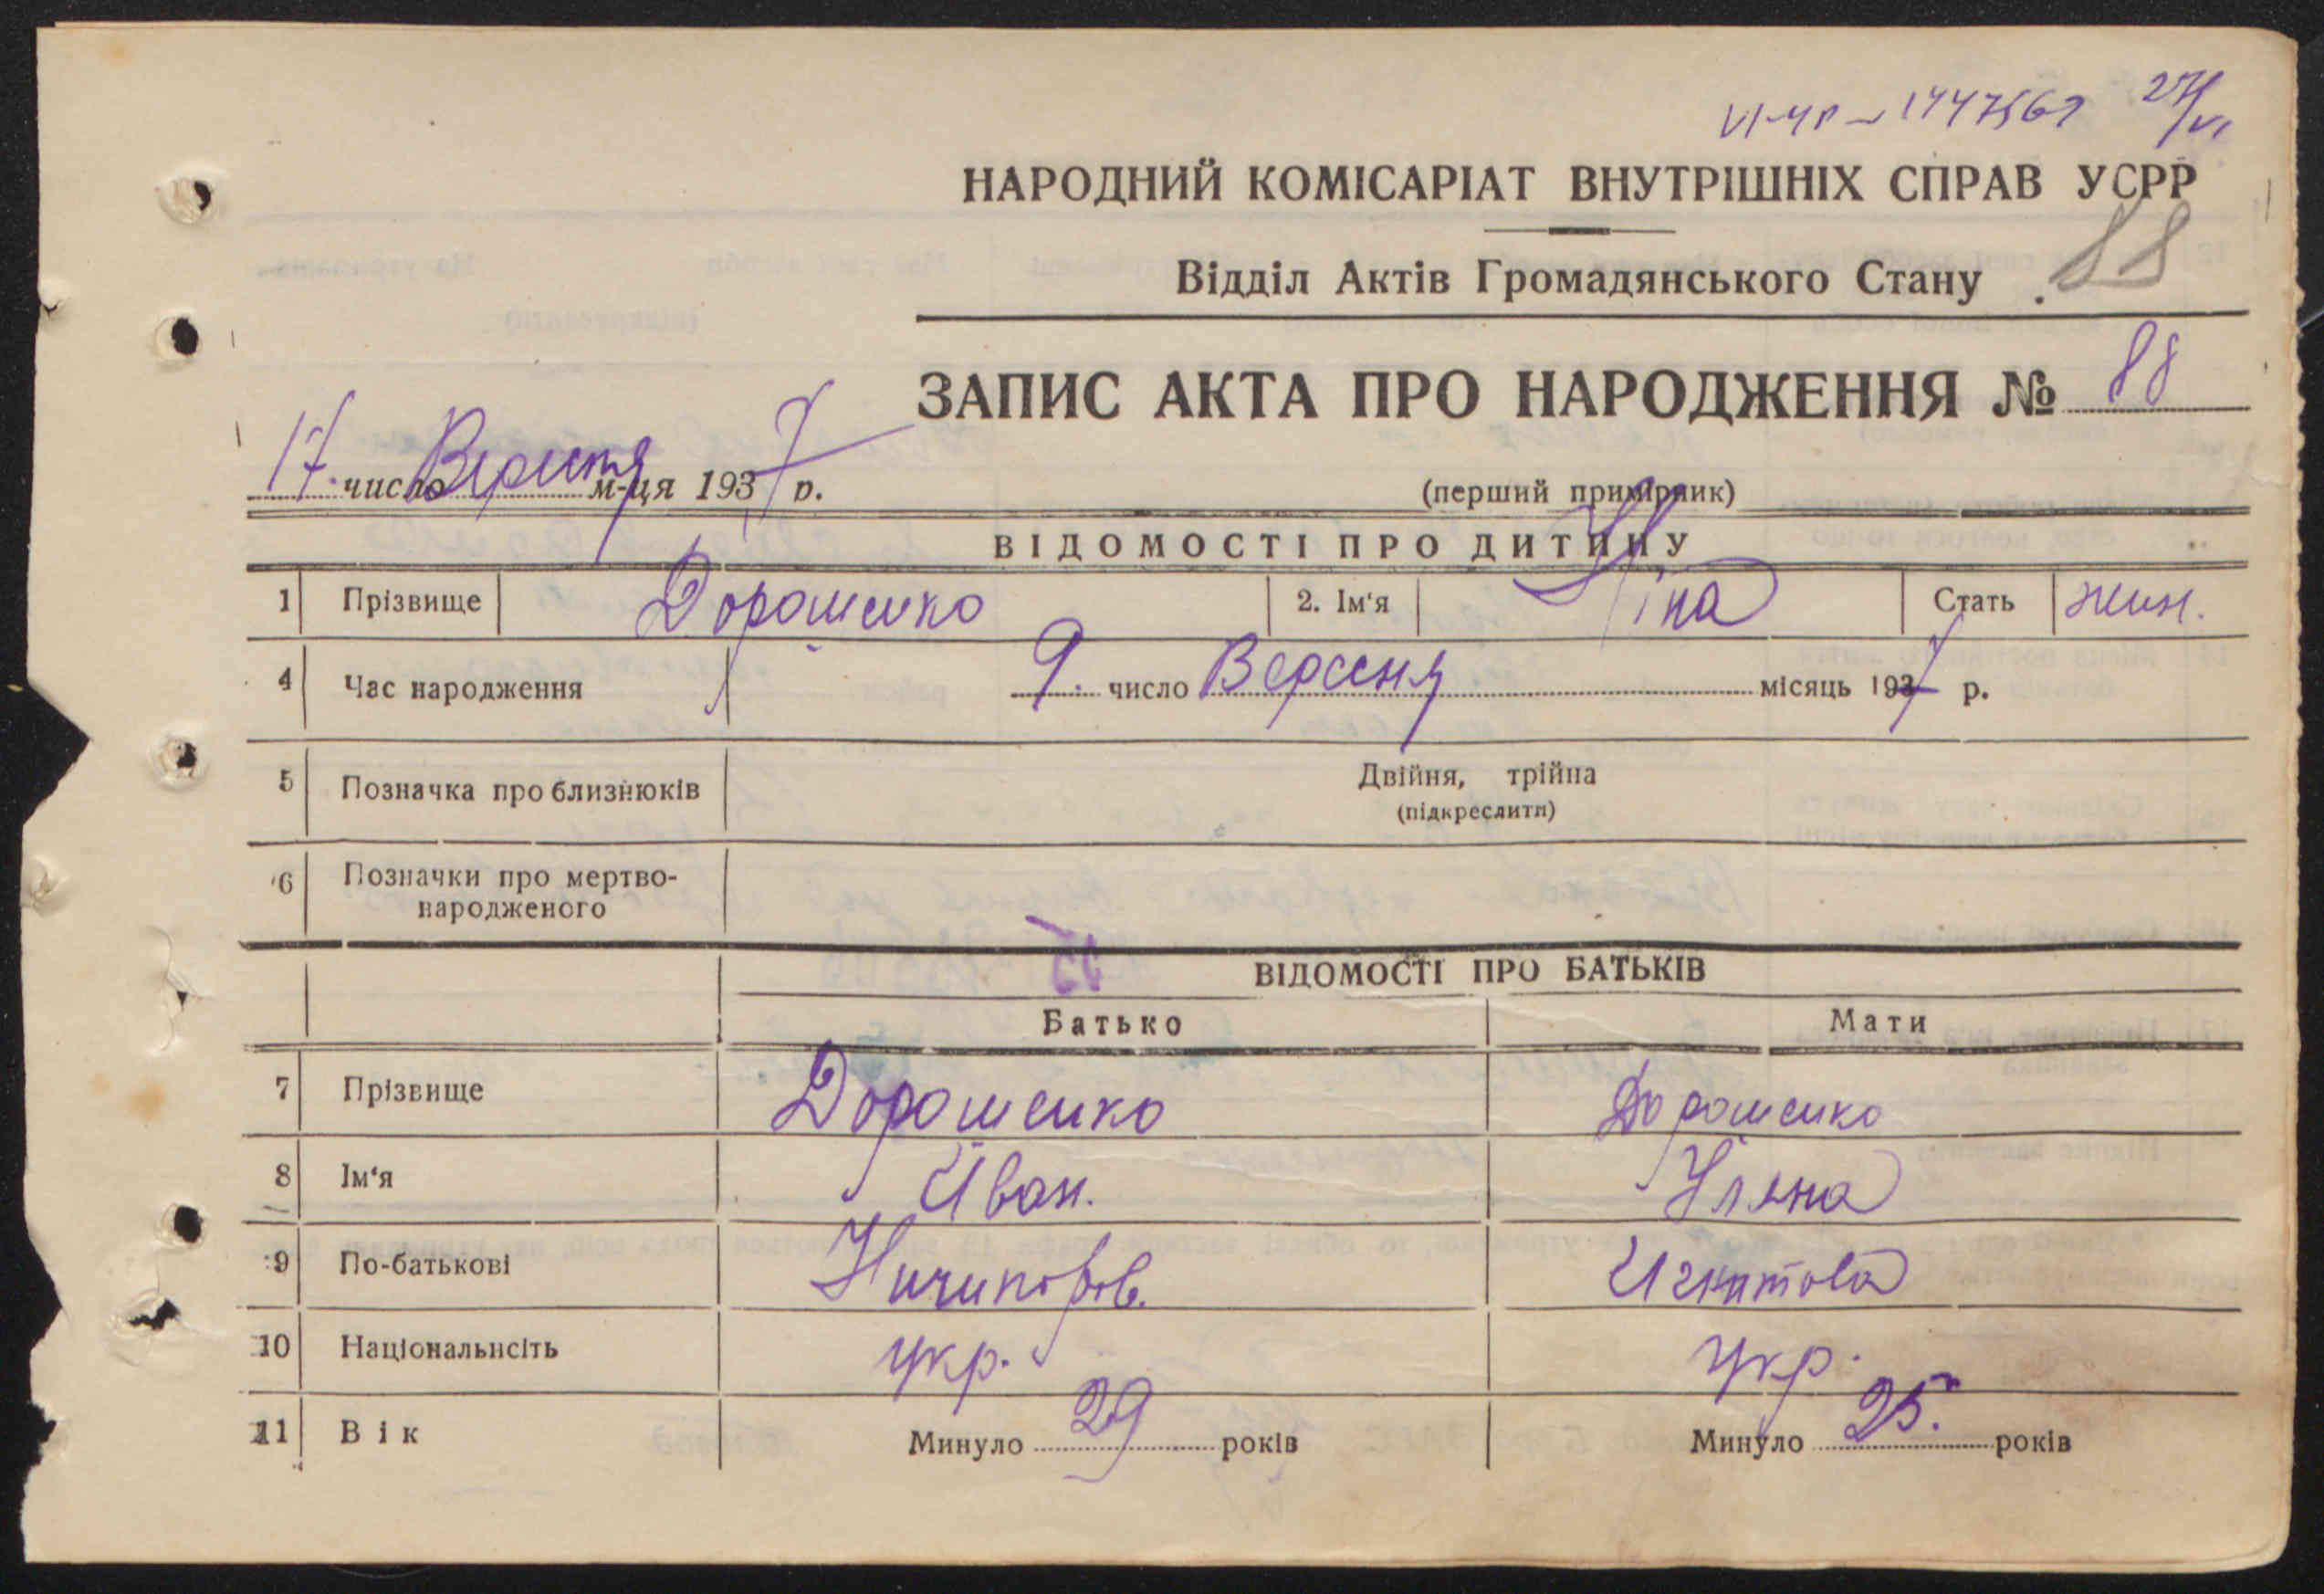 VI-УР 1447567 27/VI
НАРОДНИЙ КОМІСАРІАТ ВНУТРІШНІХ СПРАВ УСРР
Відділ Актів Громадянського Стану 88
ЗАПИС АКТА ПРО НАРОДЖЕННЯ № 88
17. число Вересня м-ця 1937 р.
(перший примірник)
ВІДОМОСТІ ПРО ДИТИНУ
1 Прізвище Дорошенко 2. Ім‘я Ніна Стать жин.
4 Час народження 9. число Вересня місяць 1937 р.
5 Позначка про близнюків Двійня, трійна
(підкреслити)
6 Позначки про мертво-
народженого
ВІДОМОСТІ ПРО БАТЬКІВ
Батько Мати
7 Прізвище Дорошенко Дорошенко
8 Ім‘я Иван. Уляна
9 По-батькові Ничипоров. Игнатова
10 Національнсіть укр. укр.
11 Вік Минуло 29 років Минуло 25. років